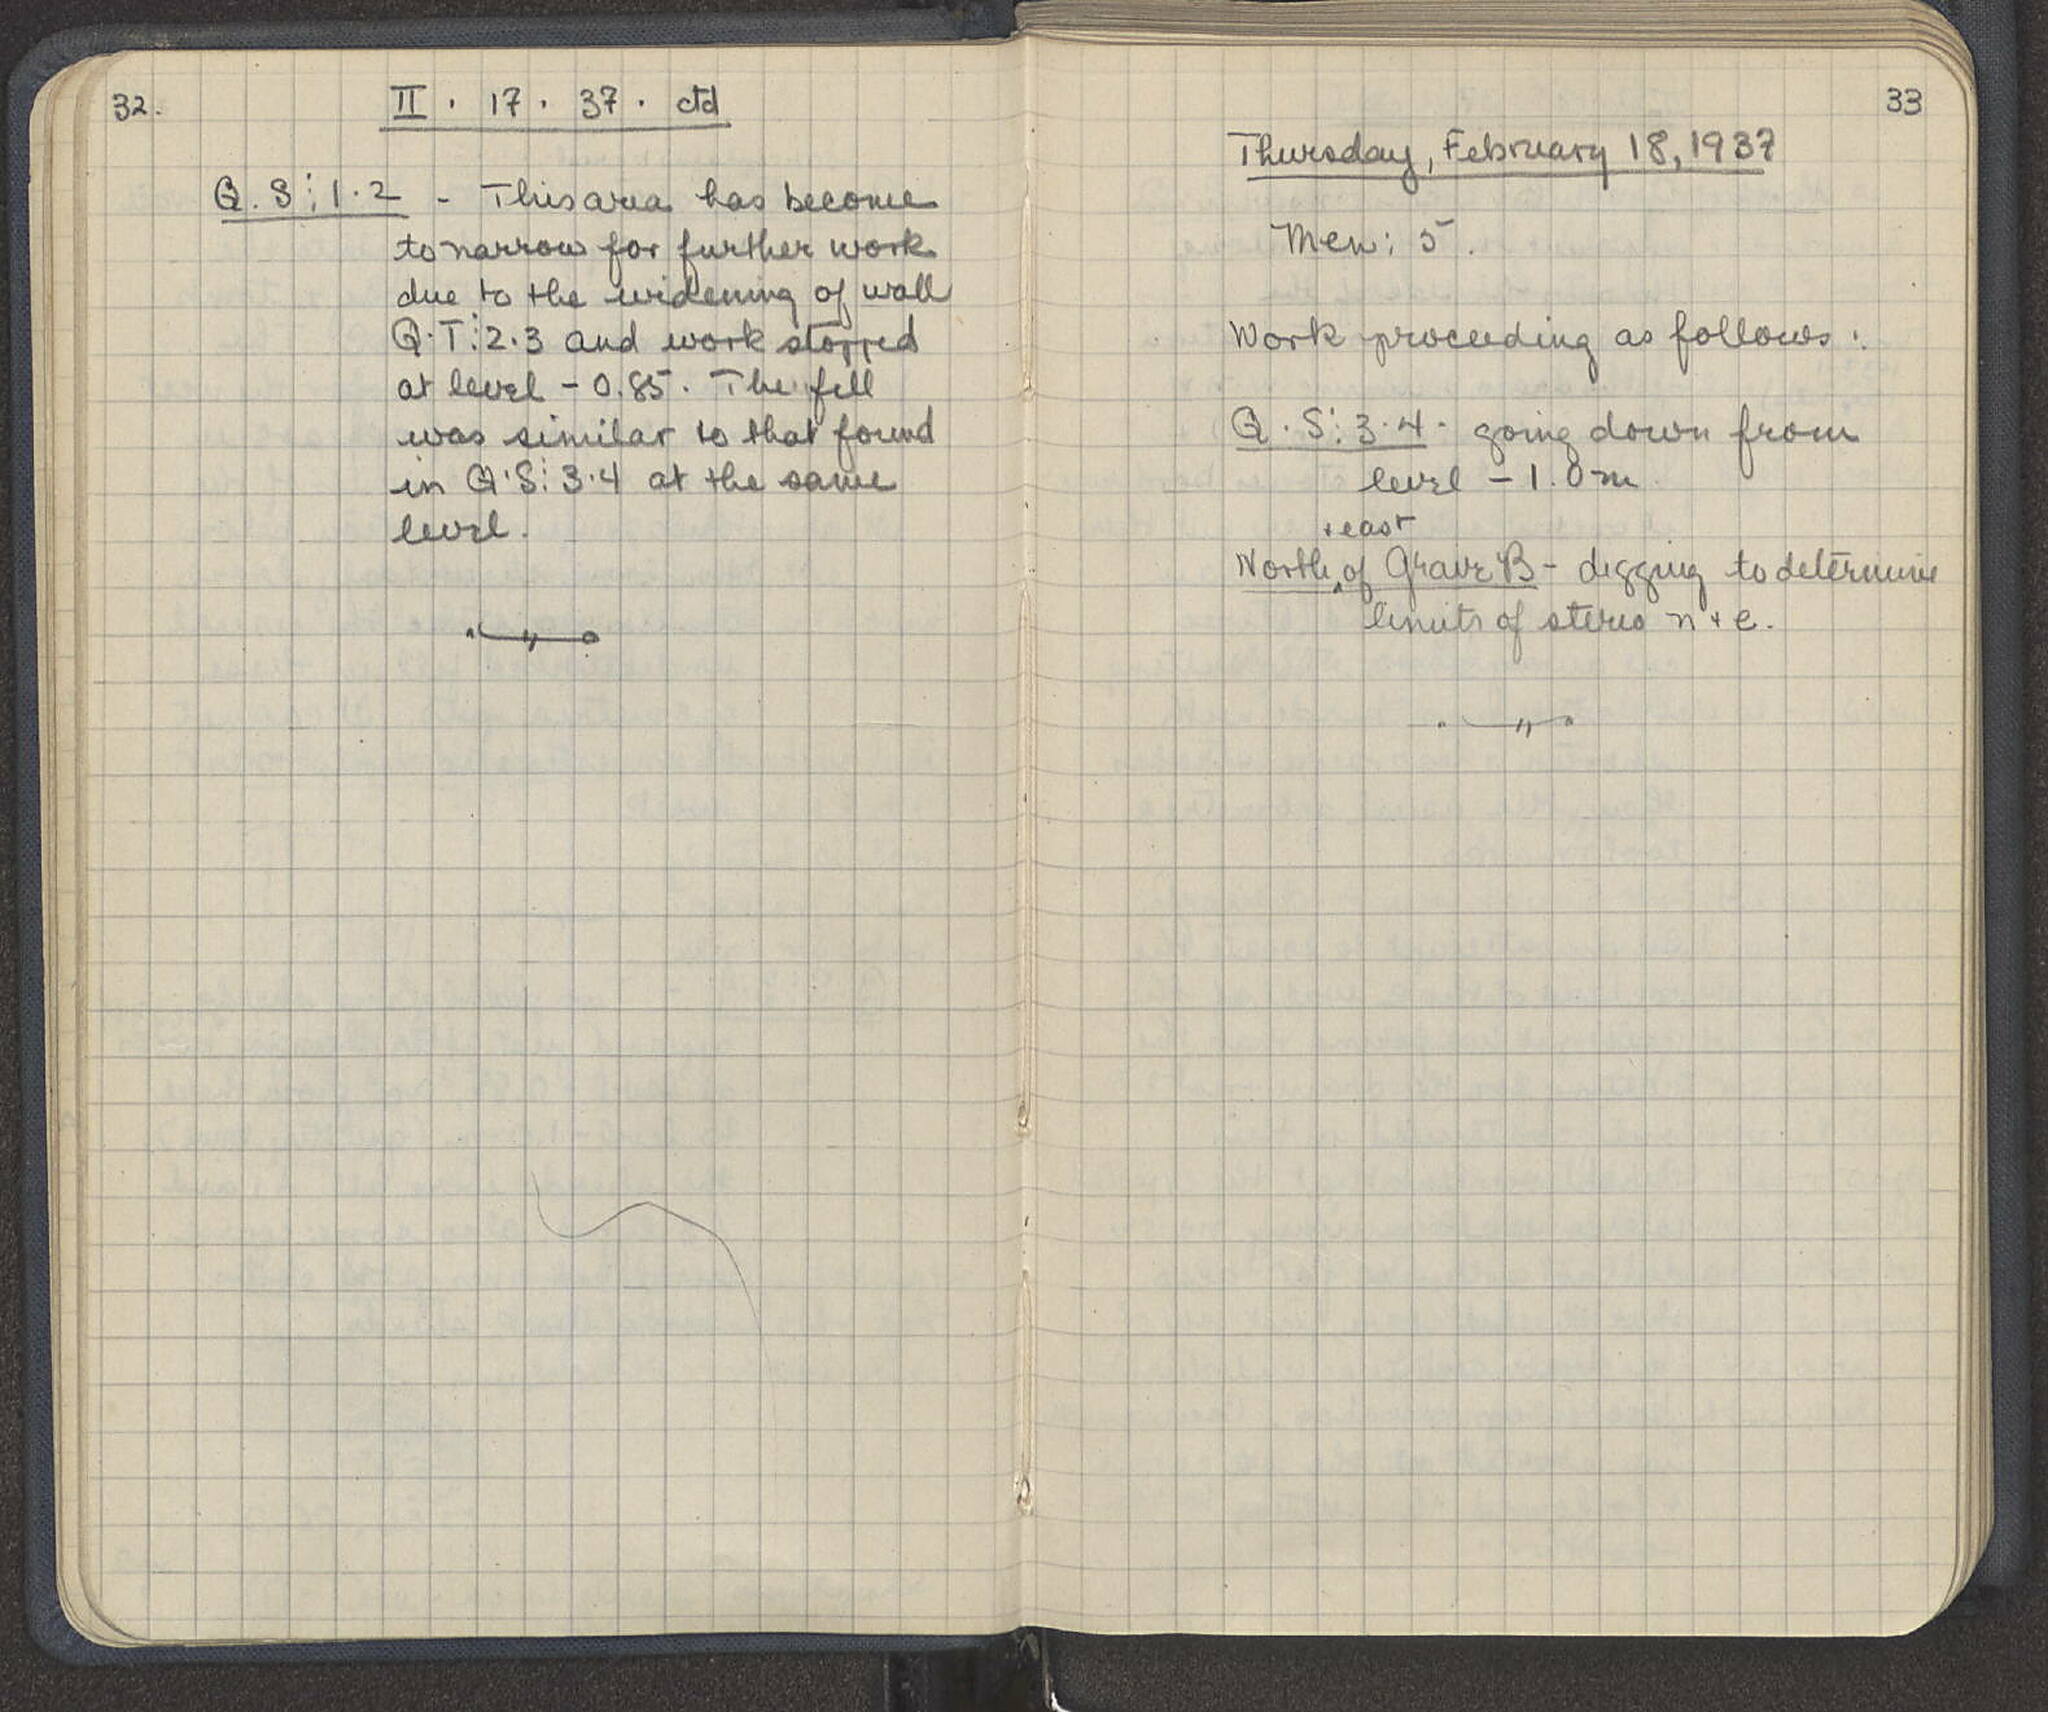 32.
II . 17 . 37 . ctd
Q.S:1.2 - This area has become
to narrow for further work
due to the widening of wall
Q.T:2.3 and work stopped
at level - 0.85. The fill
was similar to that found
in Q.S:3.4 at the same
level.
33
Thursday, February 18, 1937
Men: 5.
Work proceeding as follows:
Q.S:3.4. going down from
level - 1.0 m.
+ east
North of Grave B - digging to determine
limits of stereo n + e.